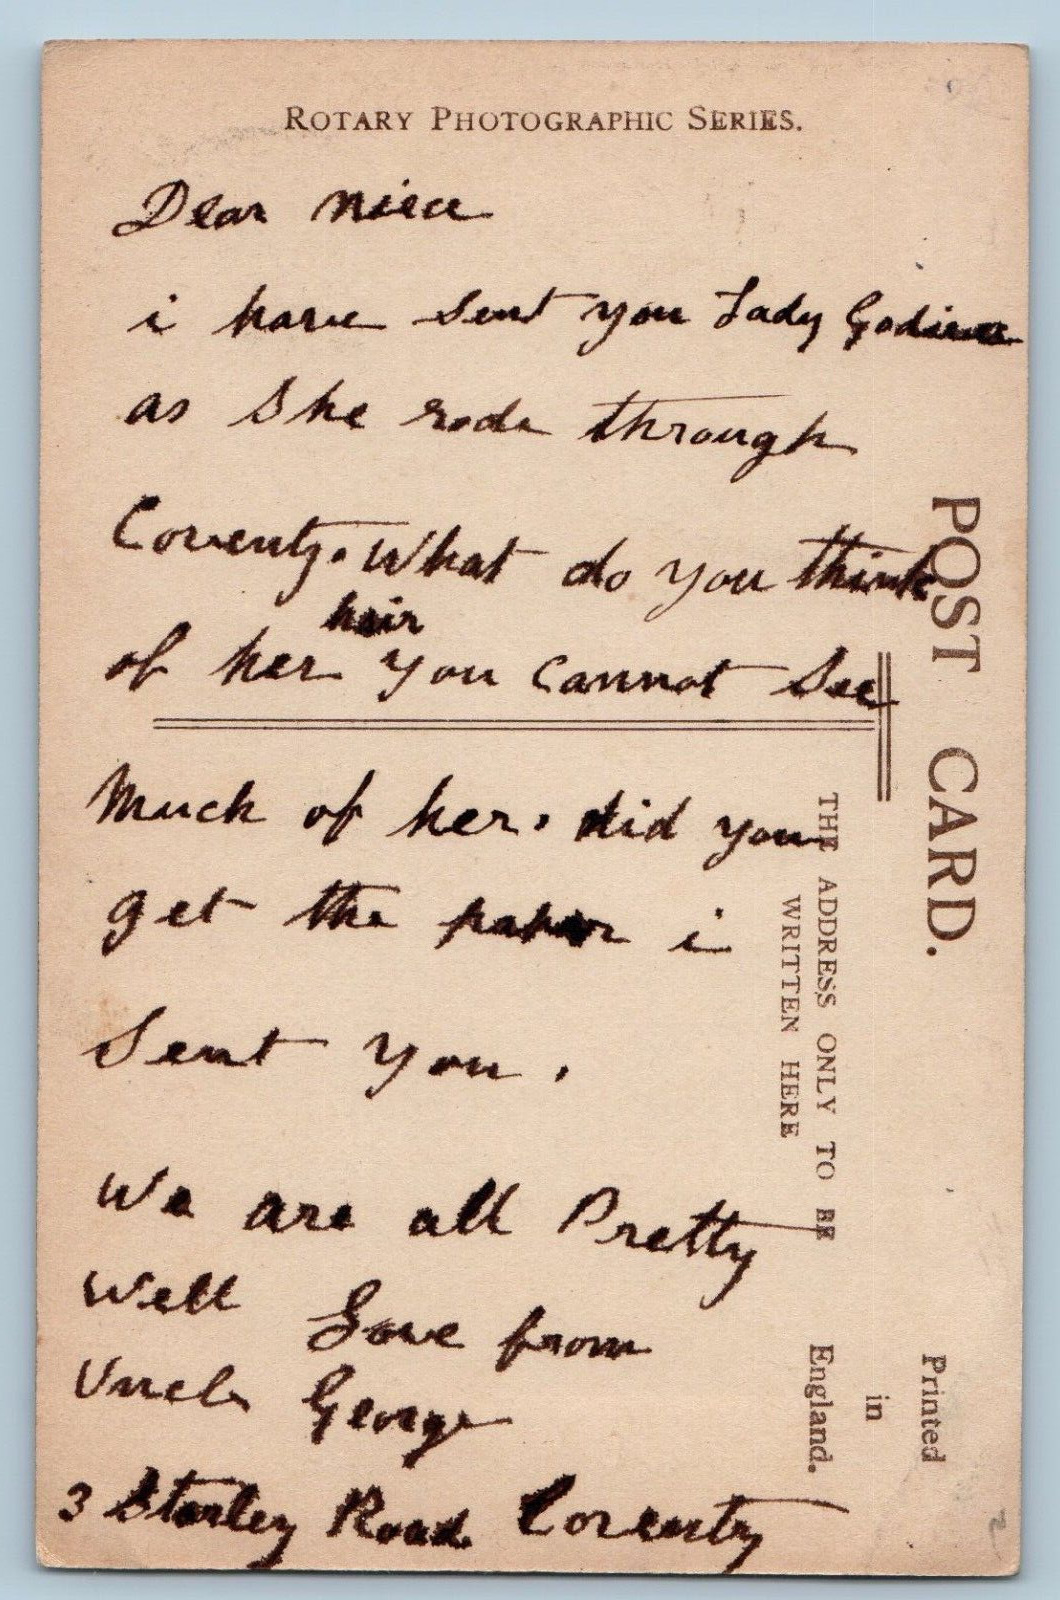 ROTARY PHOTOGRAPHIC SERIES.
Dear Niece
i have sent you Lady Godiva
as She rode through
Coventy. What do you think
hair
of her You Cannot See
Much of her. did you
get the paper i
Sent You.
We are all Pretty
Well Love from
Uncle George
3 Starley Road Coventy
POST CARD.
THE ADDRESS ONLY TO BE
WRITTEN HERE
Printed
in
England.